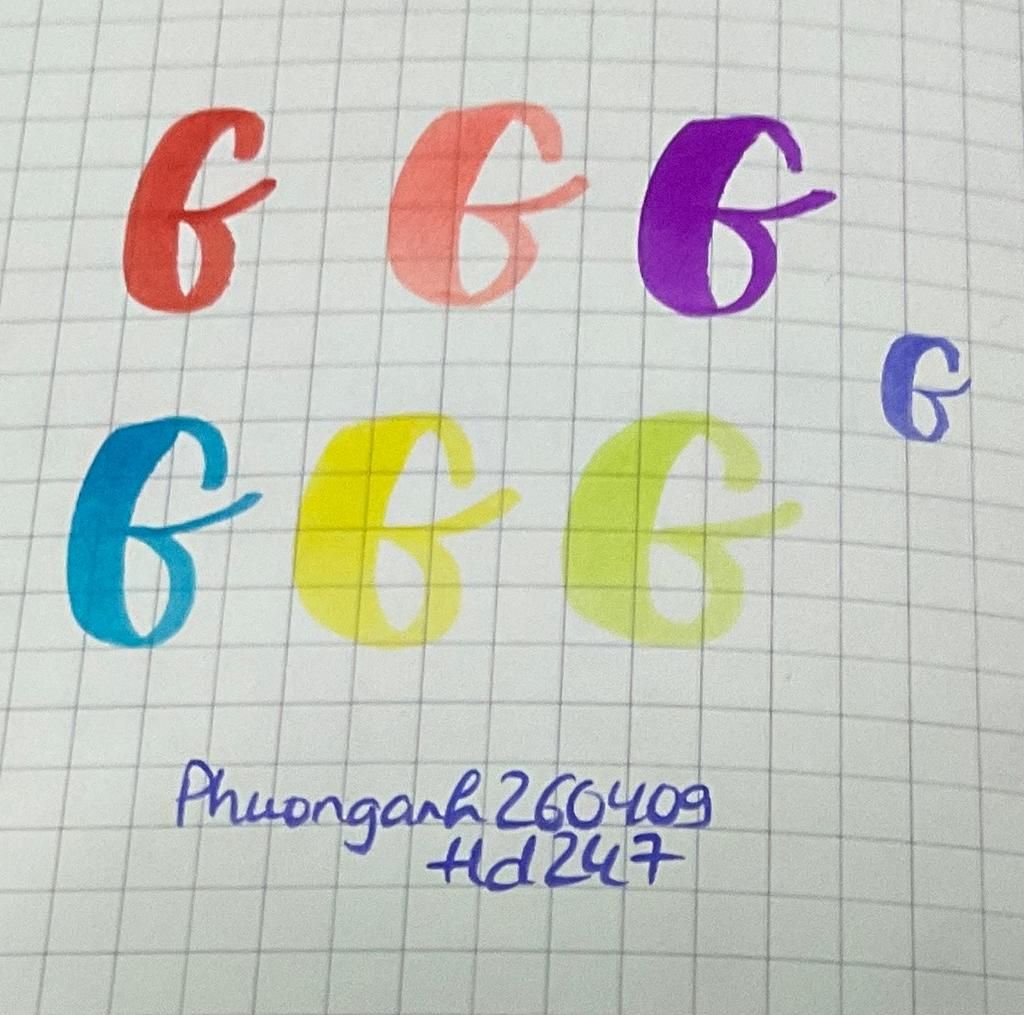 G G G
G
G G G
Phuonganh260409
Hd247